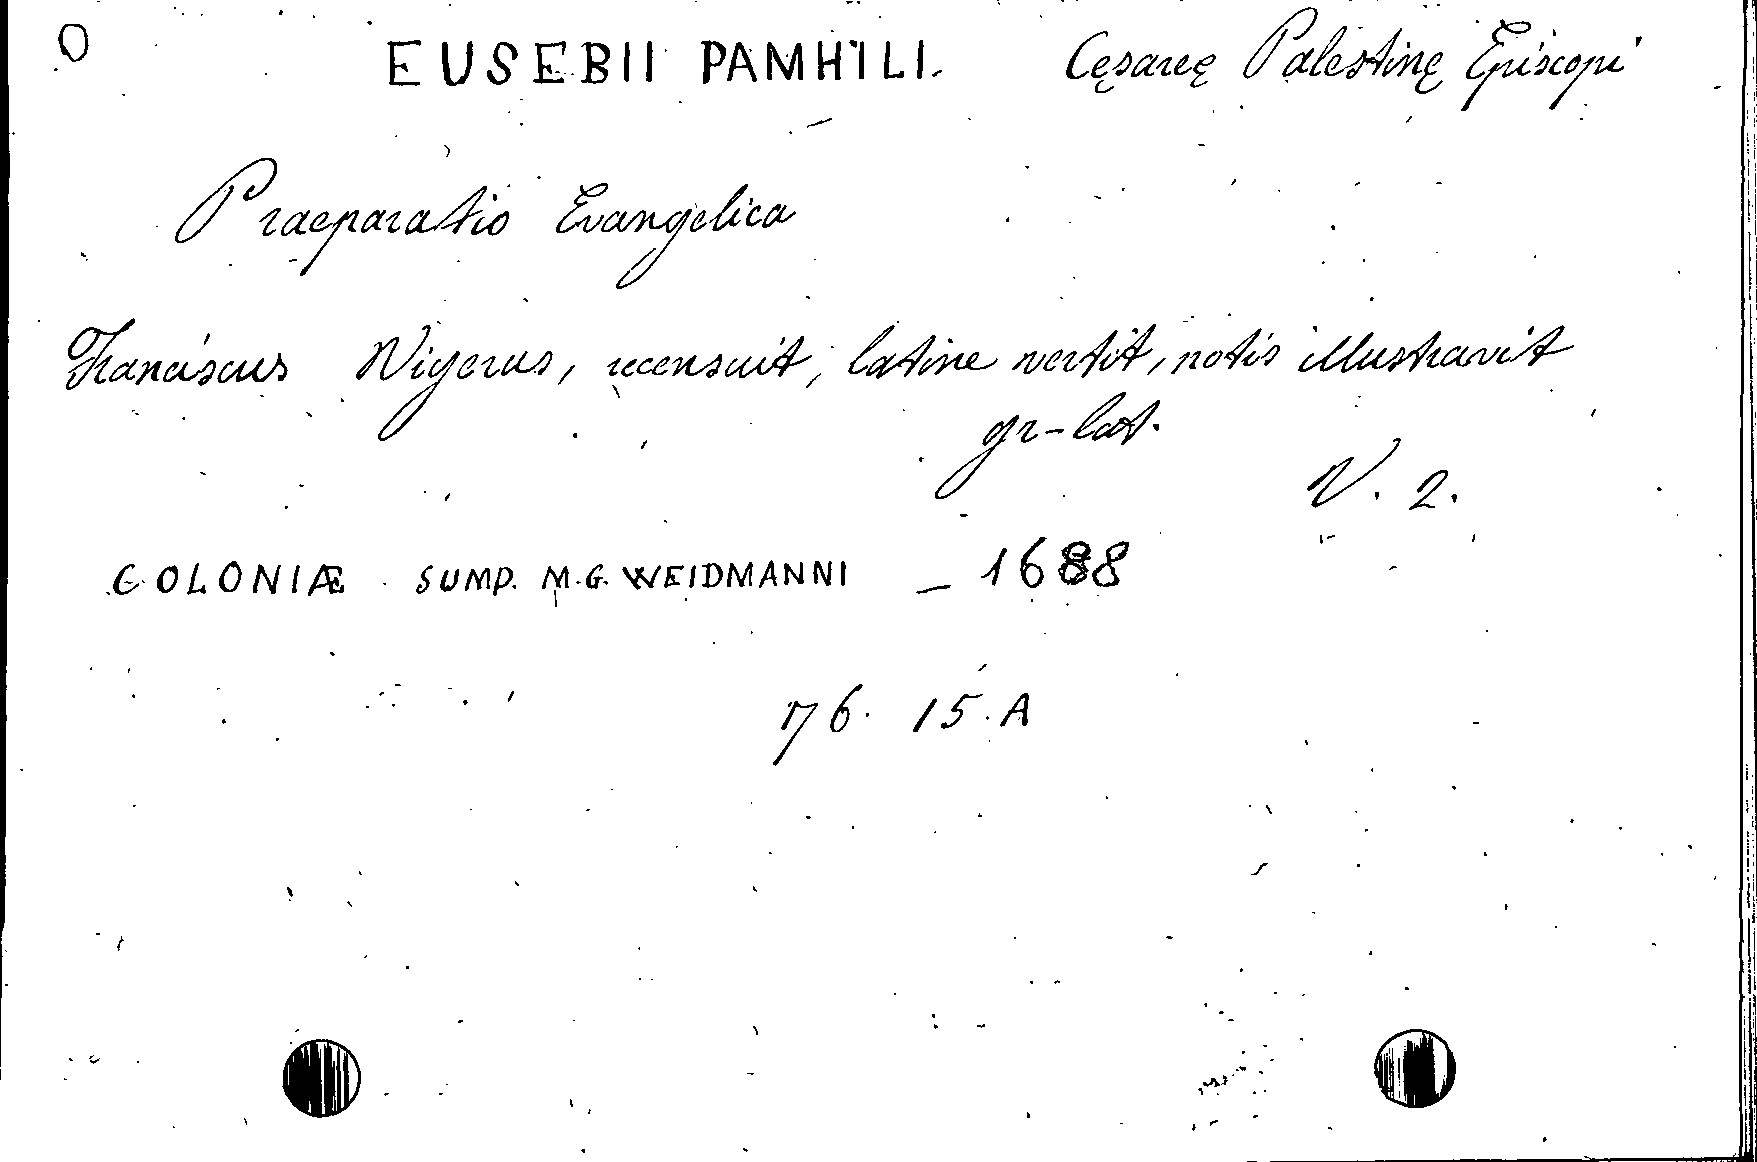 O EUSEBII PAMHILI. Cęsareę Palestinę Episcopi
Praeparatio Evangelica
Franciscus Vigerus, recensuit, latine vertit, notis illustravit
gr-lat.
V. 2.
COLONIÆ SUMP. M.G. WEIDMANNI – 1688
76. 15. A